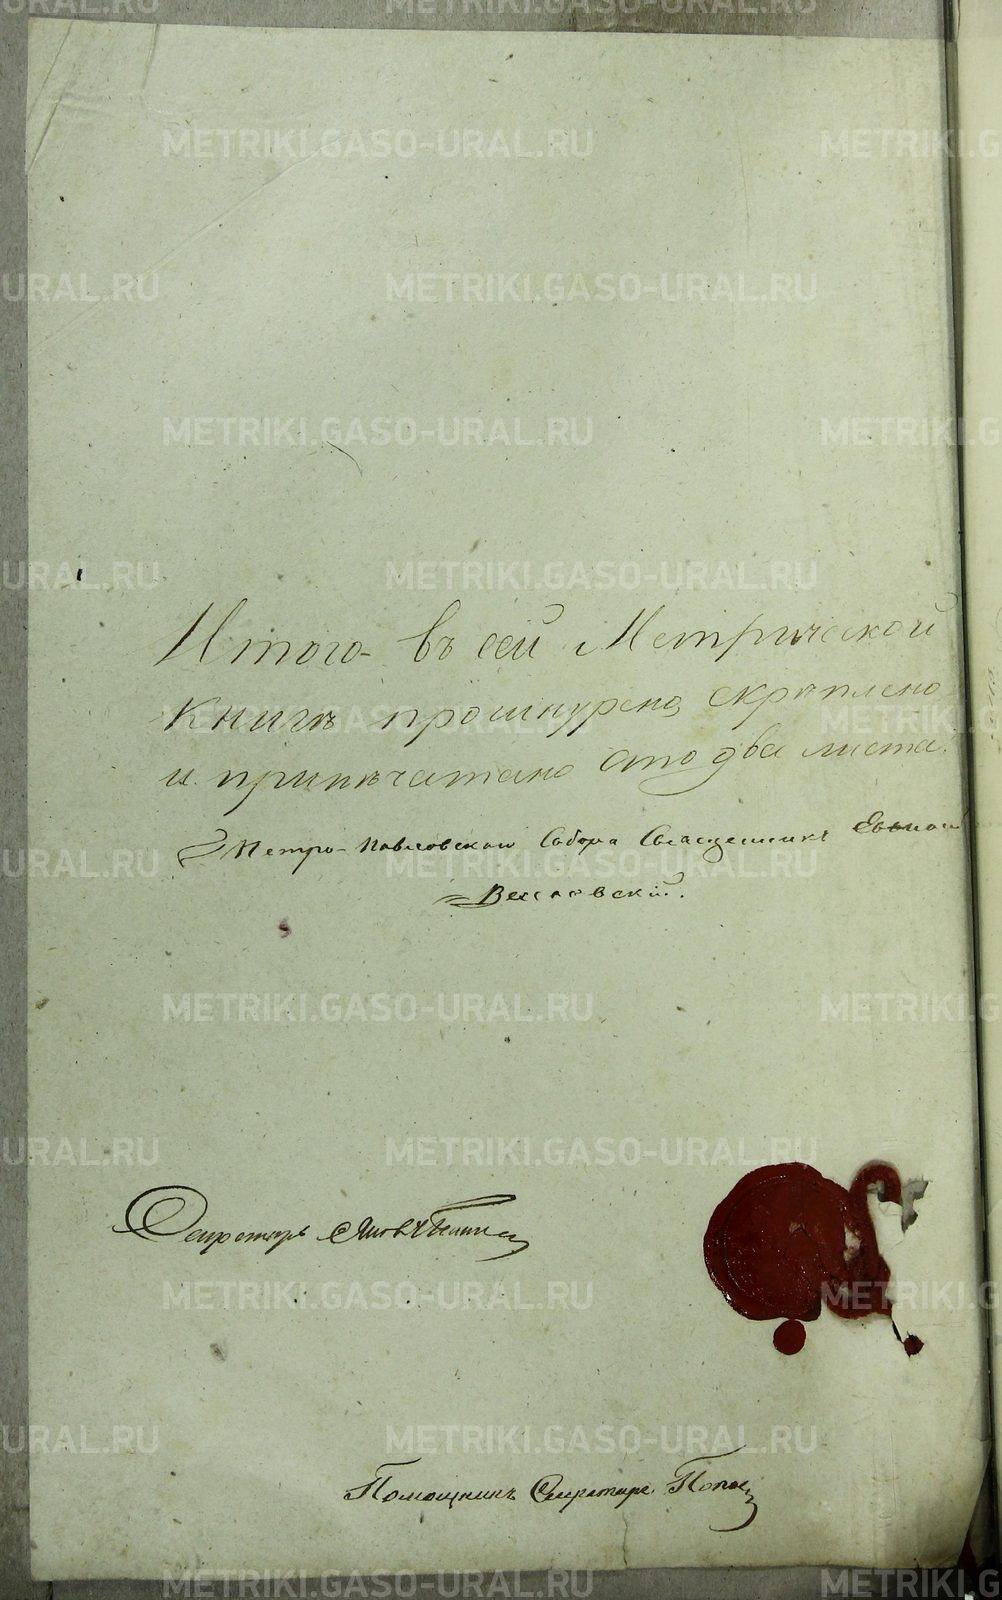 Итого въ сей Метрической
Книгѣ прошнурено, скрѣплено
и припѣчатано сто два листа.
Петро-Павловскаго Собора Священникъ
Секретарь
Помощникъ Секретаря Попов
METRIKI.GASO-URAL.RU